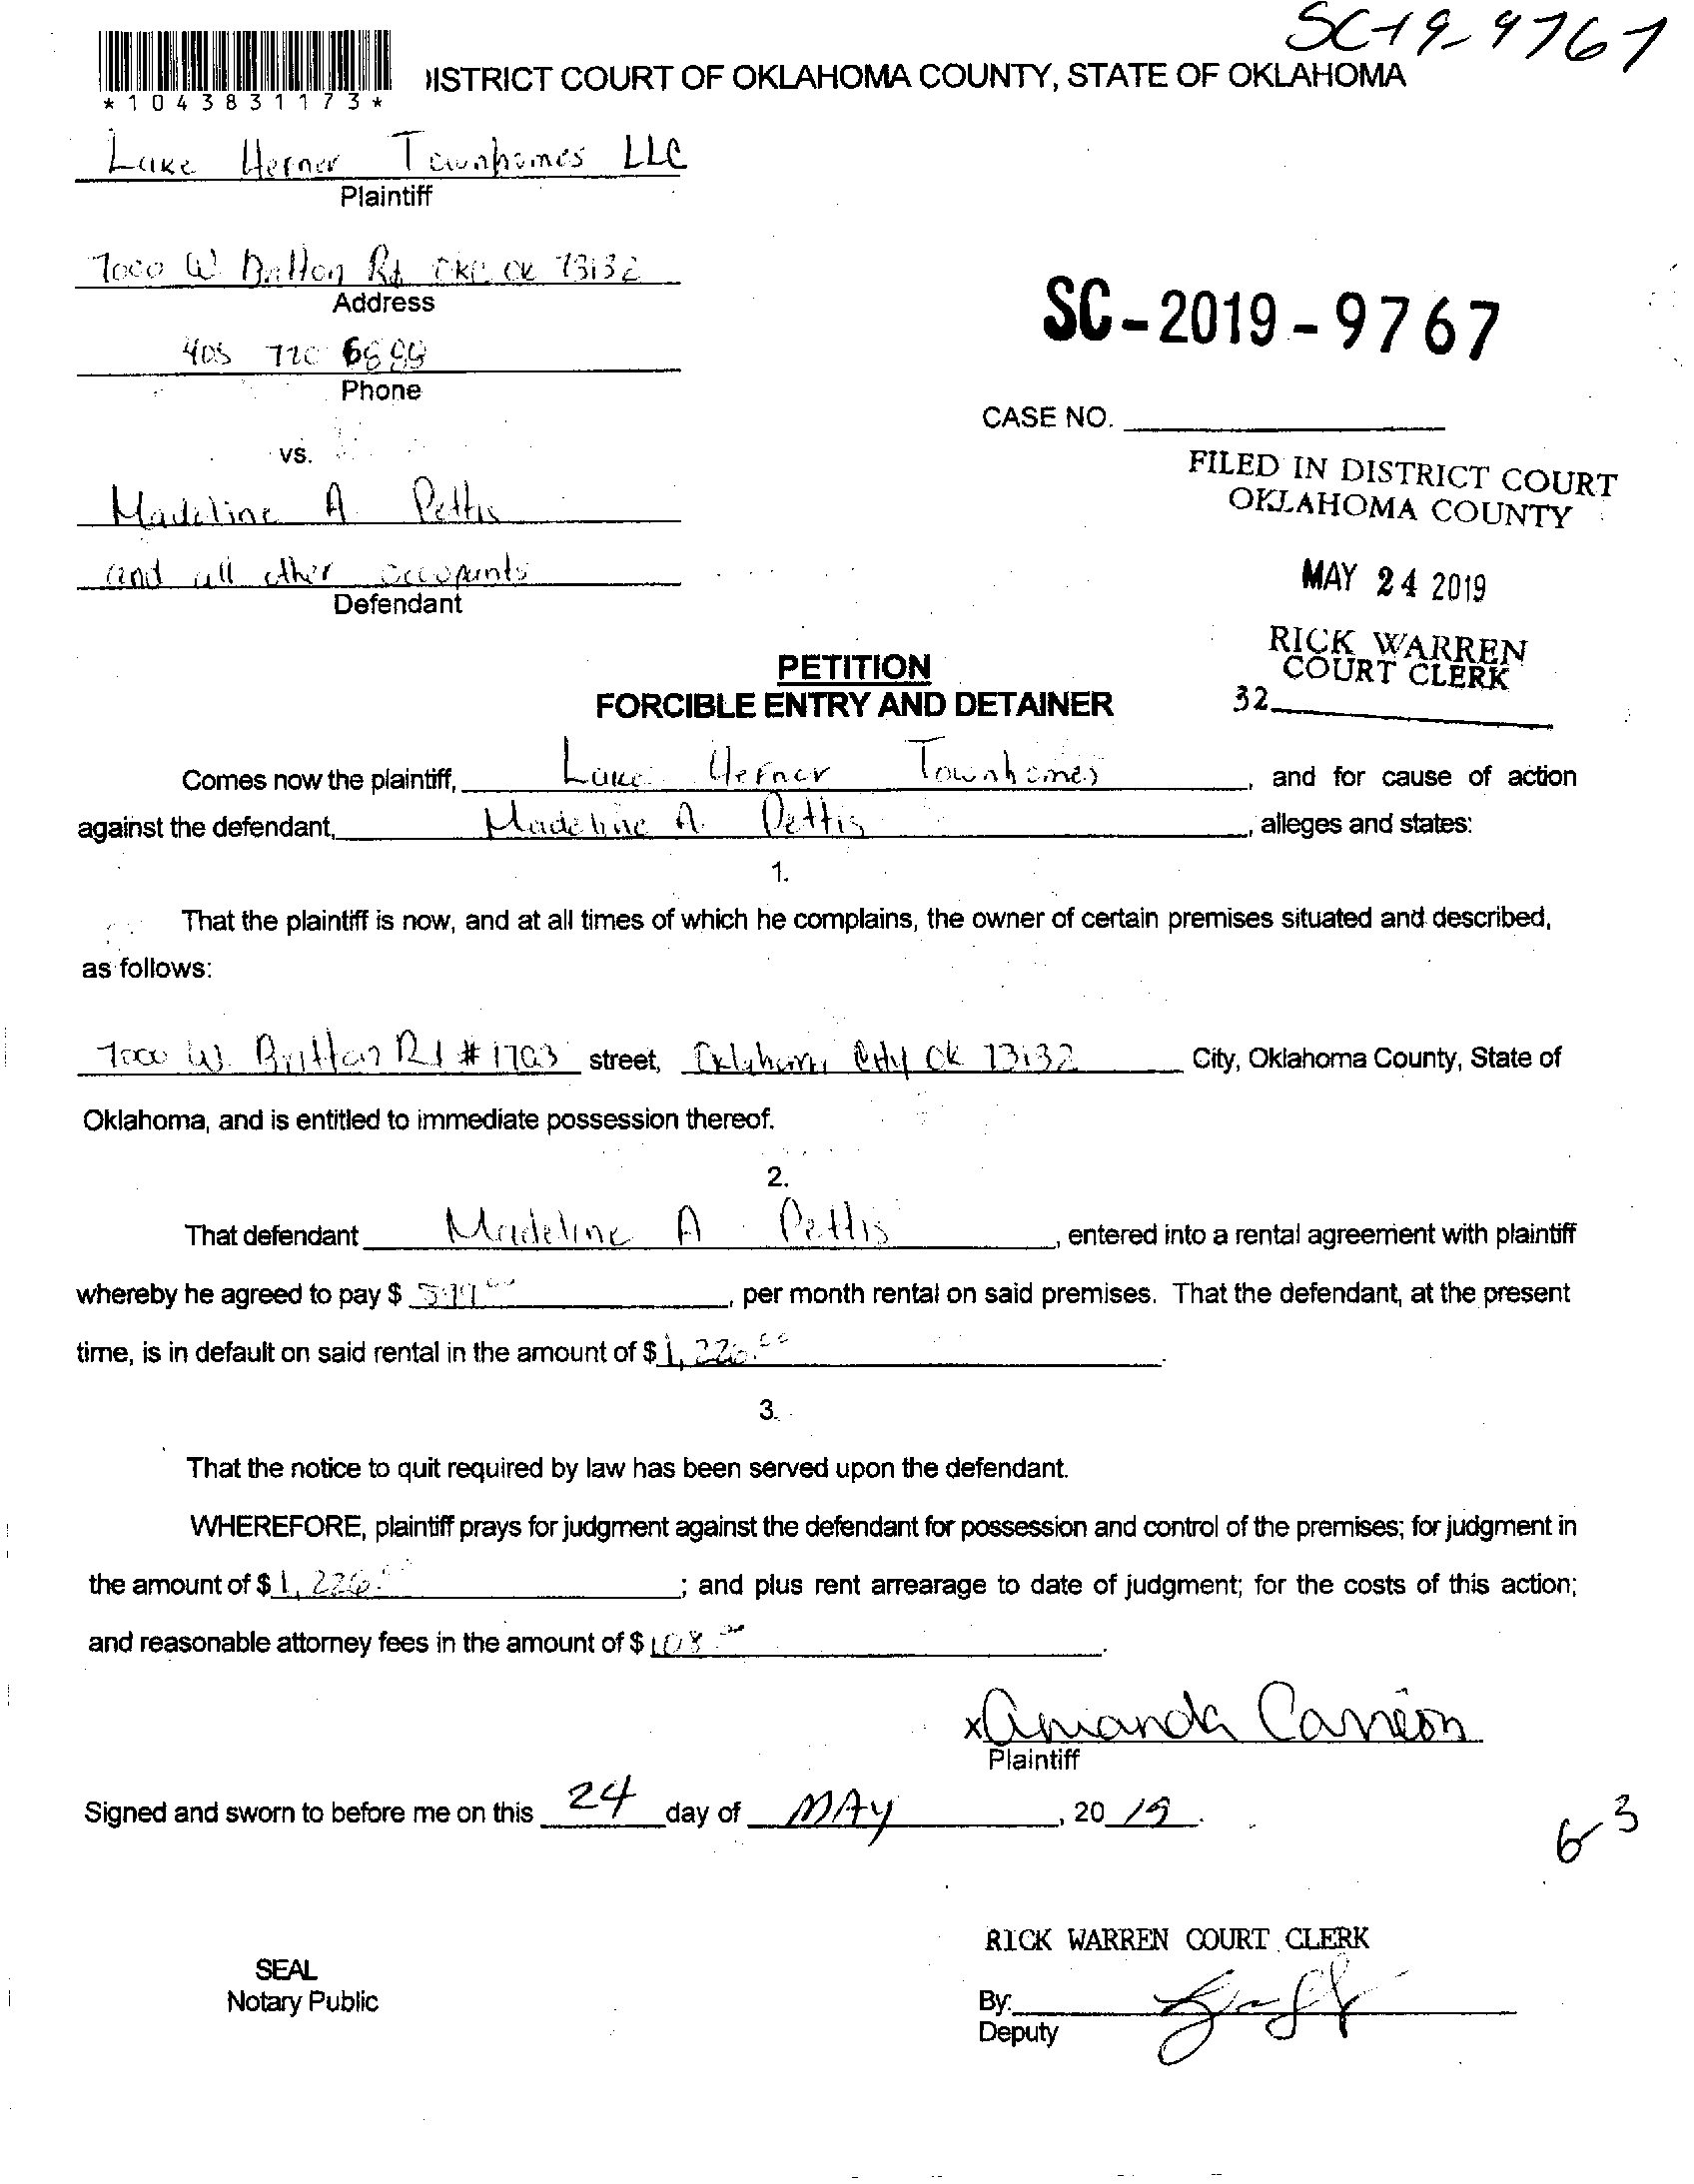 SC-19-9767
*1043831173*
DISTRICT COURT OF OKLAHOMA COUNTY, STATE OF OKLAHOMA
Lake Hefner Townhomes LLC
Plaintiff
7000 W Britton Rd OKC OK 73132
Address
405 720
Phone
SC-2019-9767
CASE NO.
vs.
FILED IN DISTRICT COURT
OKLAHOMA COUNTY
Madeline A. Pettis
and all other occupants
Defendant
MAY 24 2019
RICK WARREN
COURT CLERK
32
PETITION
FORCIBLE ENTRY AND DETAINER
Comes now the plaintiff, Lake Hefner Townhomes, and for cause of action
against the defendant, Madeline A. Pettis, alleges and states:
1.
That the plaintiff is now, and at all times of which he complains, the owner of certain premises situated and described,
as follows:
7000 W. Britton Rd # 1703 street, Oklahoma City OK 73132 City, Oklahoma County, State of
Oklahoma, and is entitled to immediate possession thereof.
2.
That defendant Madeline A Pettis, entered into a rental agreement with plaintiff
whereby he agreed to pay $ per month rental on said premises. That the defendant, at the present
time, is in default on said rental in the amount of $ 1,226.00.
3.
That the notice to quit required by law has been served upon the defendant.
WHEREFORE, plaintiff prays for judgment against the defendant for possession and control of the premises; for judgment in
the amount of $ 1,226.00; and plus rent arrearage to date of judgment; for the costs of this action;
and reasonable attorney fees in the amount of $ 108.00.
x Amanda Carreon
Plaintiff
Signed and sworn to before me on this 24 day of MAY, 20 19.
6-3
RICK WARREN COURT CLERK
SEAL
Notary Public
By:
Deputy